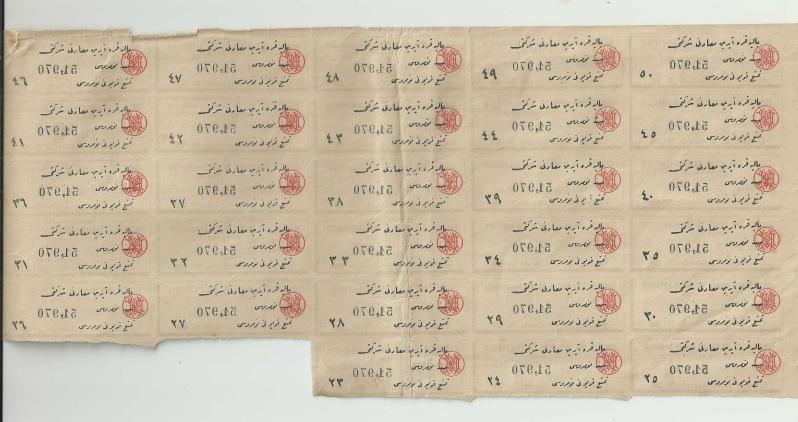 باليه قره آيدين معادنى شركتى
نومروسى 51,970
تمتع قوپونى نومروسى ٥٠
باليه قره آيدين معادنى شركتى
نومروسى 51,970
تمتع قوپونى نومروسى ٤٩
باليه قره آيدين معادنى شركتى
نومروسى 51,970
تمتع قوپونى نومروسى ٤٨
باليه قره آيدين معادنى شركتى
نومروسى 51,970
تمتع قوپونى نومروسى ٤٧
باليه قره آيدين معادنى شركتى
نومروسى 51,970
تمتع قوپونى نومروسى ٤٦
باليه قره آيدين معادنى شركتى
نومروسى 51,970
تمتع قوپونى نومروسى ٤٥
باليه قره آيدين معادنى شركتى
نومروسى 51,970
تمتع قوپونى نومروسى ٤٤
باليه قره آيدين معادنى شركتى
نومروسى 51,970
تمتع قوپونى نومروسى ٤٣
باليه قره آيدين معادنى شركتى
نومروسى 51,970
تمتع قوپونى نومروسى ٤٢
باليه قره آيدين معادنى شركتى
نومروسى 51,970
تمتع قوپونى نومروسى ٤١
باليه قره آيدين معادنى شركتى
نومروسى 51,970
تمتع قوپونى نومروسى ٤٠
باليه قره آيدين معادنى شركتى
نومروسى 51,970
تمتع قوپونى نومروسى ٣٩
باليه قره آيدين معادنى شركتى
نومروسى 51,970
تمتع قوپونى نومروسى ٣٨
باليه قره آيدين معادنى شركتى
نومروسى 51,970
تمتع قوپونى نومروسى ٣٧
باليه قره آيدين معادنى شركتى
نومروسى 51,970
تمتع قوپونى نومروسى ٣٦
باليه قره آيدين معادنى شركتى
نومروسى 51,970
تمتع قوپونى نومروسى ٣٥
باليه قره آيدين معادنى شركتى
نومروسى 51,970
تمتع قوپونى نومروسى ٣٤
باليه قره آيدين معادنى شركتى
نومروسى 51,970
تمتع قوپونى نومروسى ٣٣
باليه قره آيدين معادنى شركتى
نومروسى 51,970
تمتع قوپونى نومروسى ٣٢
باليه قره آيدين معادنى شركتى
نومروسى 51,970
تمتع قوپونى نومروسى ٣١
باليه قره آيدين معادنى شركتى
نومروسى 51,970
تمتع قوپونى نومروسى ٣٠
باليه قره آيدين معادنى شركتى
نومروسى 51,970
تمتع قوپونى نومروسى ٢٩
باليه قره آيدين معادنى شركتى
نومروسى 51,970
تمتع قوپونى نومروسى ٢٨
باليه قره آيدين معادنى شركتى
نومروسى 51,970
تمتع قوپونى نومروسى ٢٧
باليه قره آيدين معادنى شركتى
نومروسى 51,970
تمتع قوپونى نومروسى ٢٦
باليه قره آيدين معادنى شركتى
نومروسى 51,970
تمتع قوپونى نومروسى ٢٥
باليه قره آيدين معادنى شركتى
نومروسى 51,970
تمتع قوپونى نومروسى ٢٤
باليه قره آيدين معادنى شركتى
نومروسى 51,970
تمتع قوپونى نومروسى ٢٣